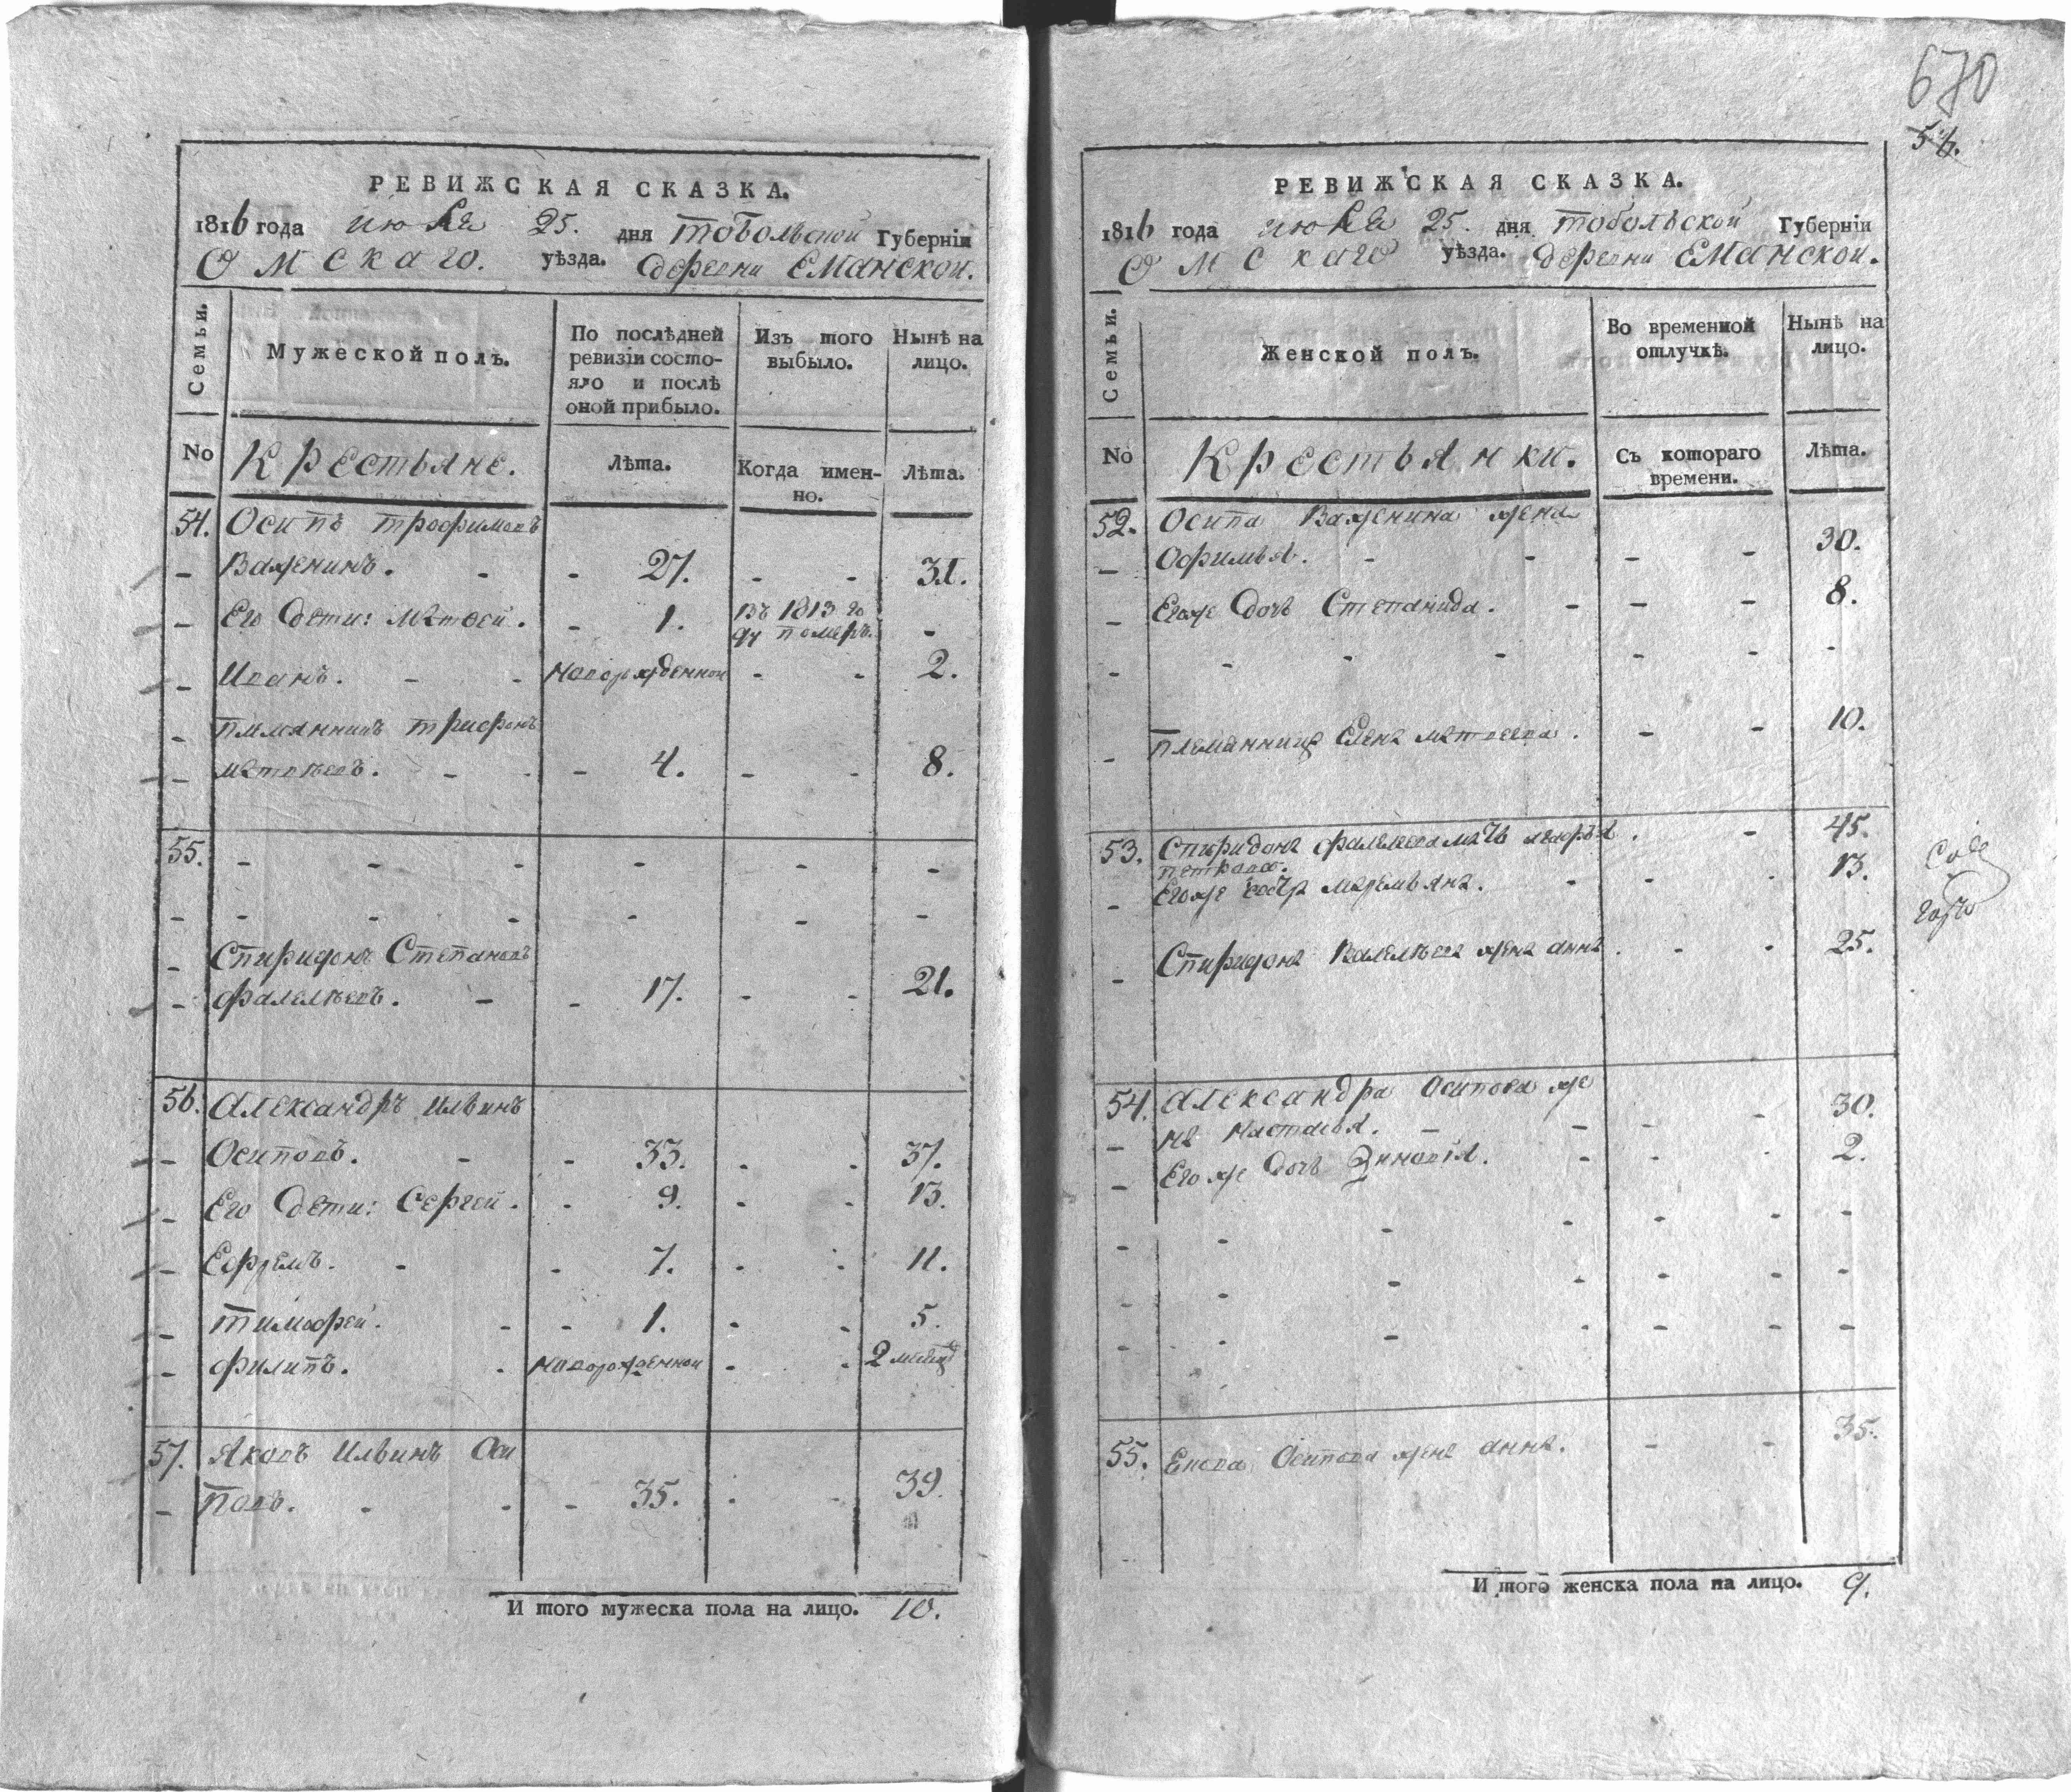 670
56.
РЕВИЖСКАЯ СКАЗКА.
1816 года июля 25. дня тобольской Губерніи
Омскаго. уѣзда. деревни Еманской.
Семьи.
Мужеской полъ.
По послѣдней
ревизіи состо-
яло и послѣ
оной прибыло.
Изъ того
выбыло.
Нынѣ на
лицо.
No
Крестьяне.
Лѣта.
Когда имен-
но.
Лѣта.
54. Осипъ трофимовъ
Важенинъ. - - - 27. - - 31.
Его дети: матвей. - 1. въ 1813 го
ду померъ. -
Иванъ. - - новорожденной - - 2.
племянникъ трифонъ
матвѣевъ. - - - 4. - - 8.
55. - - - - - -
- - - - - -
Спиридонъ Степановъ
фалелѣевъ. - - 17. - - 21.
56. Александръ Ильинъ
Осиповъ. - - 33. - - 37.
Его дети: Сергей. - 9. - - 13.
Ефремъ. - - 7. - - 11.
тимофей. - - 1. - - 5.
филипъ. - новорожденной - - 2 месяц
57. Яковъ Ильинъ Оси
повъ. - - - 35. - - 39.
И того мужеска пола на лицо. 10.
РЕВИЖСКАЯ СКАЗКА.
1816 года июля 25. дня тобольской Губерніи
Омскаго уѣзда. деревни Еманской.
Семьи.
Женской полъ.
Во временной
отлучкѣ.
Нынѣ на
лицо.
No
Крестьянки.
Съ котораго
времени.
Лѣта.
52. Осипа Важенина жена
Офимья. - - - - 30.
Егоже дочь Степанида. - - - 8.
- - - - - -
племянница Елена матвеева. - - 10.
53. Спиридона фалелеева мать марфа . - 45.
петрова.
Егоже сестра маремьяна. - - - 13.
Спиридона Валелѣева жена анна . - - 25.
54. Александра Осипова же
на Настасья. - - - - 30.
Егоже дочь Зиновія. - - - 2.
- - - - -
- - - - - -
- - - - - -
55. Якова Осипова жена анна. - - 35.
И того женска пола на лицо. 9.